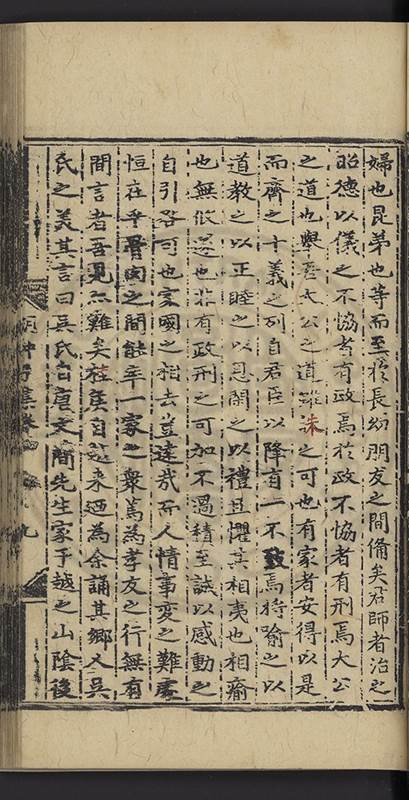 婦也昆弟也等而至於長幼朋友之間備矣君師者治之
昭德以儀之不協者有政焉於政不協者有刑焉大公
之道也舉至大公之道雖誅之可也有家者安得以是
而齊之十義之列自君臣以降有一不致焉特喻之以
道教之以正睦之以恩閑之以禮且懼其相夷也相瘉
也無假遂也非有政刑之可加不過積至誠以感動之
自引咎可也家國之相去豈遠哉而人情事變之難處
恒在乎骨肉之間能率一家之衆篤為孝友之行無有
間言者吾見亦難矣桂矦自越來迺為余誦其鄉人吳
氏之義其言曰吳氏自唐文簡先生家于越之山陰後
集卷 九